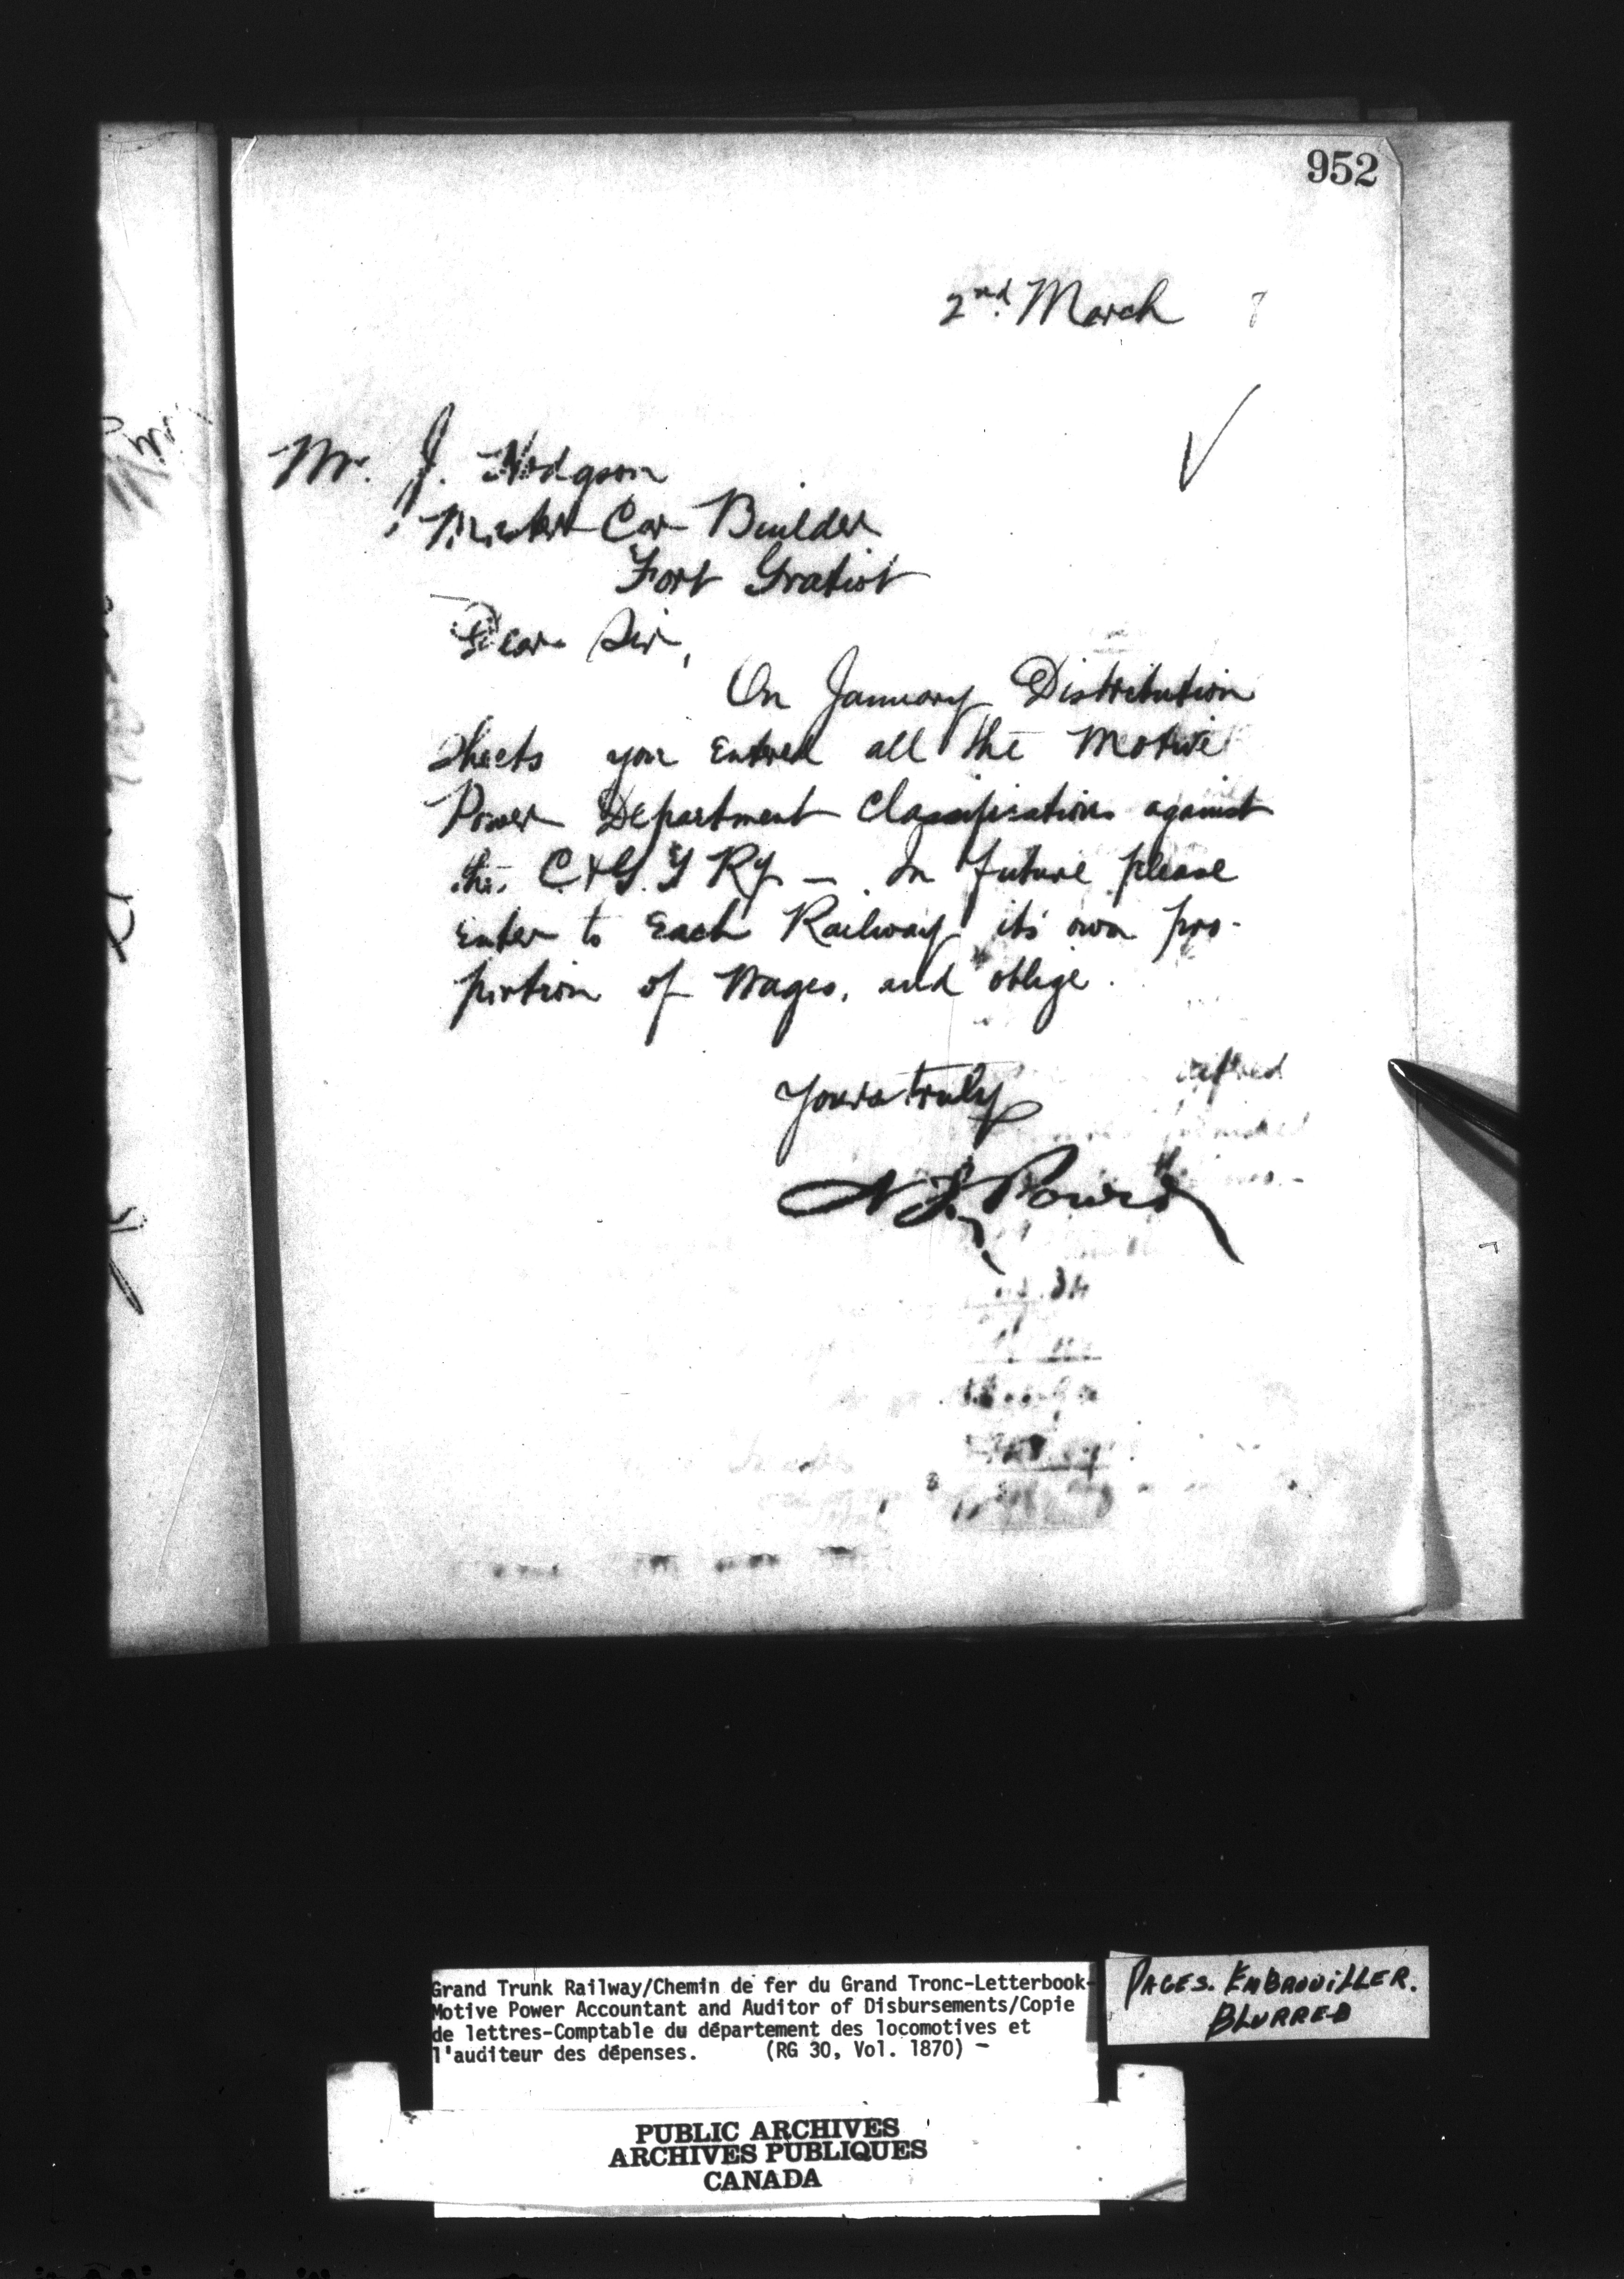 952
2nd. March 8
Mr. J. Hodgson
Master Car Builder
Fort Gratiot
Dear Sir,
On January Distribution
Sheets you Entered all the Motive
Power Department Classifications against
the C & G. T Ry — In future please
Enter to Each Railway its own pro-
portion of Wages, and oblige.
Yours truly
Grand Trunk Railway/Chemin de fer du Grand Tronc-Letterbook-
Motive Power Accountant and Auditor of Disbursements/Copie
de lettres-Comptable du département des locomotives et
l'auditeur des dépenses. (RG 30, Vol. 1870) -
PAGES. EMBROUILLER.
BLURRED
PUBLIC ARCHIVES
ARCHIVES PUBLIQUES
CANADA